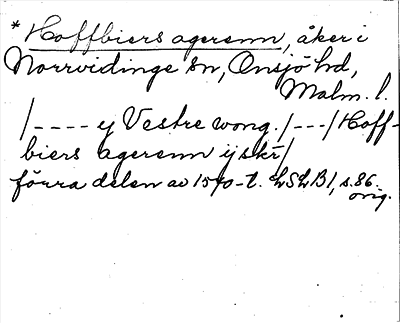 * Hoffbiers agerenn, åker i
Norrvidinge sn, Onsjö hd,
Malm. l.
/---- y Vestre wong. /---/ Hoff-
biers agerenn ij skr/
förra delen av 1570-t. LSLB1, s. 86.
orig.